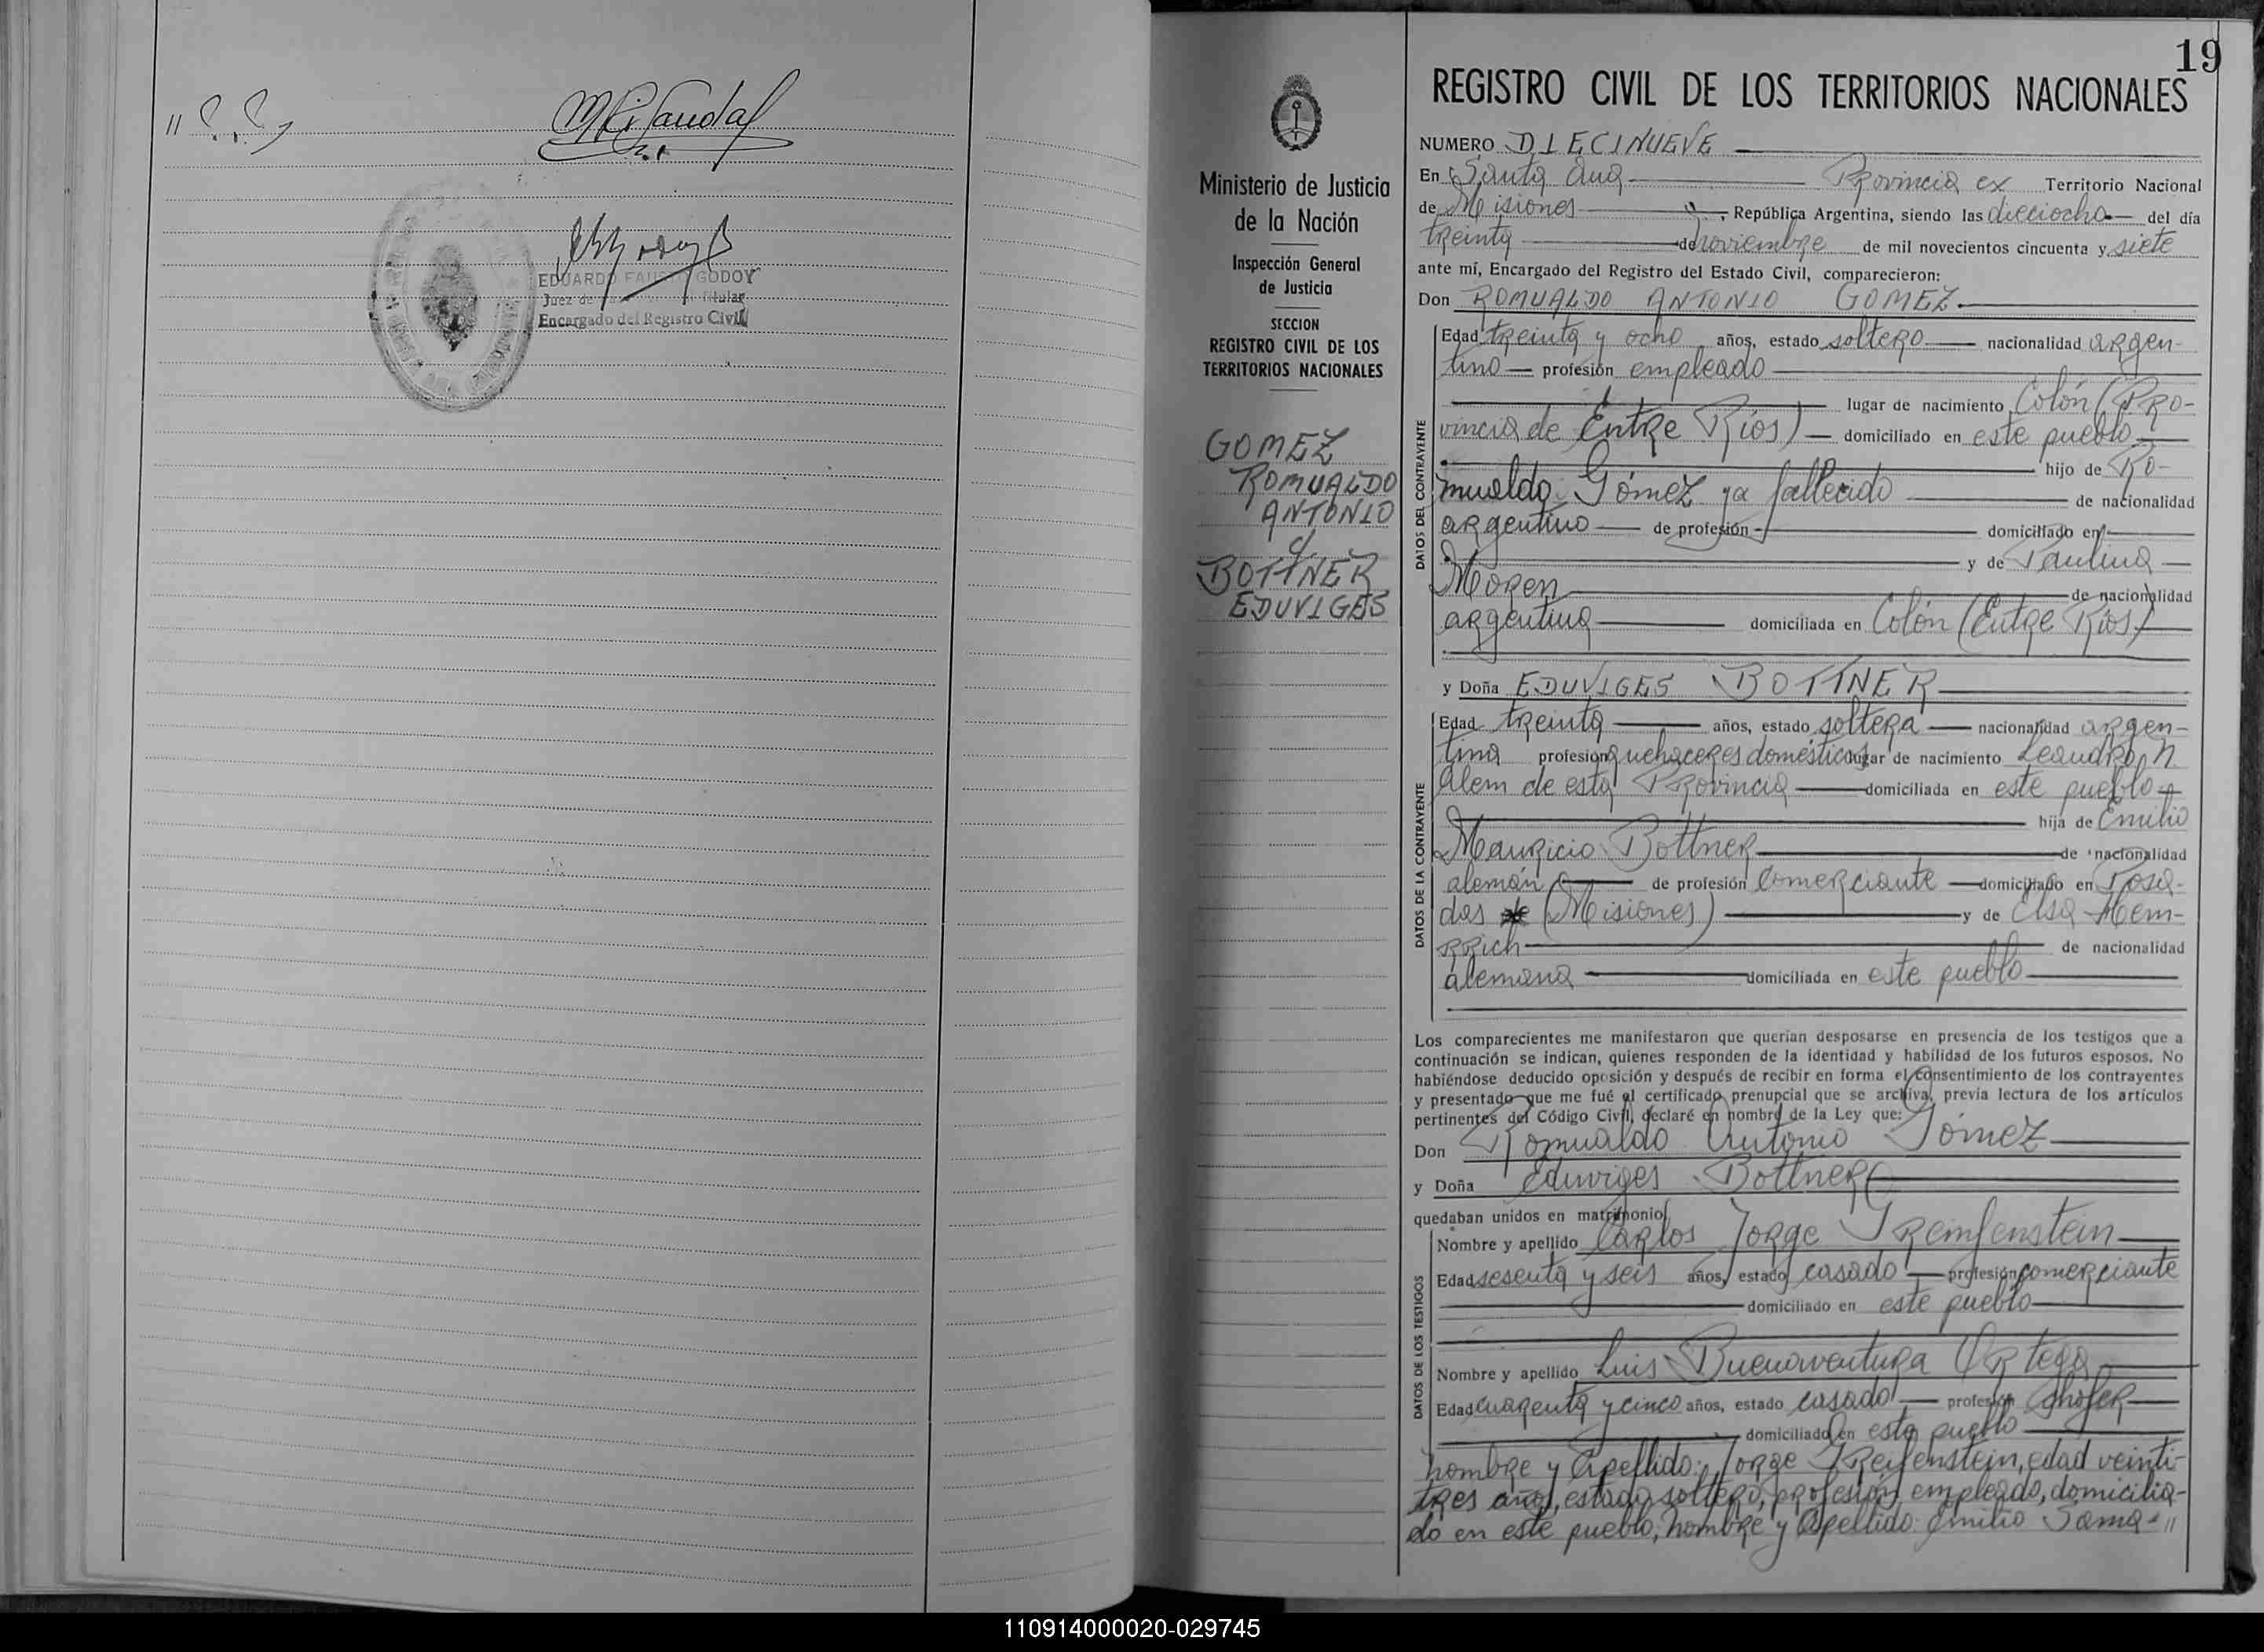 EDUARDO FAUSTO GODOY
Juez de Titular
Encargado del Registro Civil
19
REGISTRO CIVIL DE LOS TERRITORIOS NACIONALES
Ministerio de Justicia
de la Nación
Inspección General
de Justicia
SECCION
REGISTRO CIVIL DE LOS
TERRITORIOS NACIONALES
GOMEZ
ROMUALDO
ANTONIO
BOTTNER
EDUVIGES
NUMERO DIECINUEVE
En Santa Ana Provincia ex Territorio Nacional
de Misiones, República Argentina, siendo las dieciocho del día
treinta de noviembre de mil novecientos cincuenta y siete
ante mí, Encargado del Registro del Estado Civil, comparecieron:
Don ROMUALDO ANTONIO GOMEZ.
DATOS DEL CONTRAYENTE
Edad treinta y ocho años, estado soltero nacionalidad argen-
tino profesión empleado
lugar de nacimiento Colón (Pro-
vincia de Entre Ríos) domiciliado en este pueblo
hijo de Ro-
mualdo Gómez ya fallecido de nacionalidad
argentino de profesión domiciliado en
y de Paulina
Moren de nacionalidad
argentina domiciliada en Colón (Entre Ríos)
y Doña EDUVIGES BOTTNER
DATOS DE LA CONTRAYENTE
Edad treinta años, estado soltera nacionalidad argen-
tina profesión quehaceres domésticos lugar de nacimiento Leandro N.
Alem de esta Provincia domiciliada en este pueblo
hija de Emilio
Mauricio Bottner de nacionalidad
alemán de profesión comerciante domiciliado en Posa-
das (Misiones) y de Elsa Hem-
rrich de nacionalidad
alemana domiciliada en este pueblo
Los comparecientes me manifestaron que querían desposarse en presencia de los testigos que a
continuación se indican, quienes responden de la identidad y habilidad de los futuros esposos. No
habiéndose deducido oposición y después de recibir en forma el consentimiento de los contrayentes
y presentado que me fué el certificado prenupcial que se archiva, previa lectura de los artículos
pertinentes del Código Civil, declaré en nombre de la Ley que:
Don Romualdo Antonio Gómez
y Doña Eduviges Bottner
quedaban unidos en matrimonio
DATOS DE LOS TESTIGOS
Nombre y apellido Carlos Jorge Greinfenstein
Edad sesenta y seis años, estado casado profesión comerciante
domiciliado en este pueblo
Nombre y apellido Luis Buenaventura Ortega
Edad cuarenta y cinco años, estado casado profesión chofer
domiciliado en este pueblo
nombre y Apellido: Jorge Greifenstein, edad veinti-
tres años, estado soltero, profesión empleado, domicilia-
do en este pueblo, nombre y Apellido: Emilio Sama-"
110914000020-029745